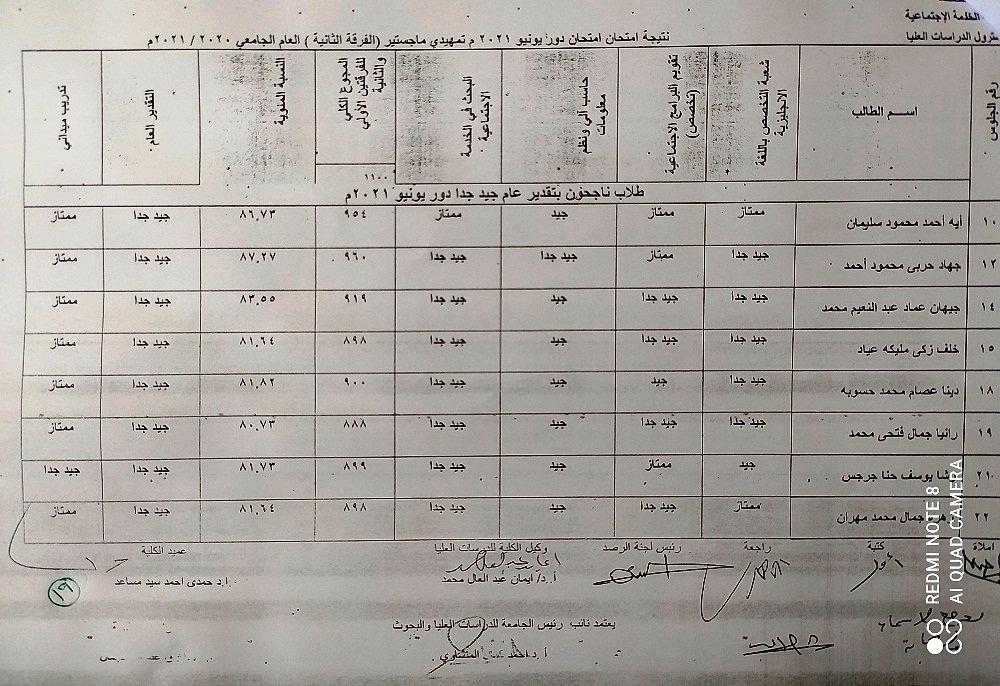 الخدمة الإجتماعية
كنترول الدراسات العليا
نتيجة امتحان امتحان دور يونيو ٢٠٢١ م تمهيدي ماجستير (الفرقة الثانية ) العام الجامعي ٢٠٢٠ / ٢٠٢١م
رقم الجلوس | اسم الطالب | شعبة التخصص باللغة الانجليزية | تقويم البرامج الاجتماعية (تخصص) | حاسب آلي ونظم معلومات | البحث في الخدمة الاجتماعية | المجموع الكلي للفرقتين الأولي والثانية | النسبة المئوية | التقدير العام | تدريب ميداني
١١٠٠
طلاب ناجحون بتقدير عام جيد جدا دور يونيو ٢٠٢١م
١٠ | أيه أحمد محمود سليمان | ممتاز | ممتاز | جيد | ممتاز | ٩٥٤ | ٨٦.٧٣ | جيد جدا | ممتاز
١٢ | جهاد حربى محمود أحمد | جيد جدا | ممتاز | جيد جدا | جيد جدا | ٩٦٠ | ٨٧.٢٧ | جيد جدا | ممتاز
١٤ | جيهان عماد عبد النعيم محمد | جيد جدا | جيد جدا | جيد | جيد جدا | ٩١٩ | ٨٣.٥٥ | جيد جدا | ممتاز
١٥ | خلف زكى مليكه عياد | جيد جدا | جيد جدا | جيد | جيد جدا | ٨٩٨ | ٨١.٦٤ | جيد جدا | ممتاز
١٨ | دينا عصام محمد حسوبه | جيد جدا | جيد | جيد | جيد جدا | ٩٠٠ | ٨١.٨٢ | جيد جدا | ممتاز
١٩ | رانيا جمال فتحى محمد | جيد جدا | جيد جدا | جيد | جيد جدا | ٨٨٨ | ٨٠.٧٣ | جيد جدا | ممتاز
٢١ | يوسف حنا جرجس | جيد | ممتاز | جيد | جيد جدا | ٨٩٩ | ٨١.٧٣ | جيد جدا | جيد جدا
٢٢ | جمال محمد مهران | ممتاز | جيد جدا | جيد | جيد جدا | ٨٩٨ | ٨١.٦٤ | جيد جدا | ممتاز
املاة | كتبة | راجعة | رئيس لجنة الرصد | وكيل الكلية للدراسات العليا | عميد الكلية
أ.د/ ايمان عبد العال محمد | ا.د حمدى احمد سيد مساعد
١٩
يعتمد نائب رئيس الجامعة للدراسات العليا والبحوث
أ.د احمد المنشاوي
REDMI NOTE 8
AI QUAD CAMERA